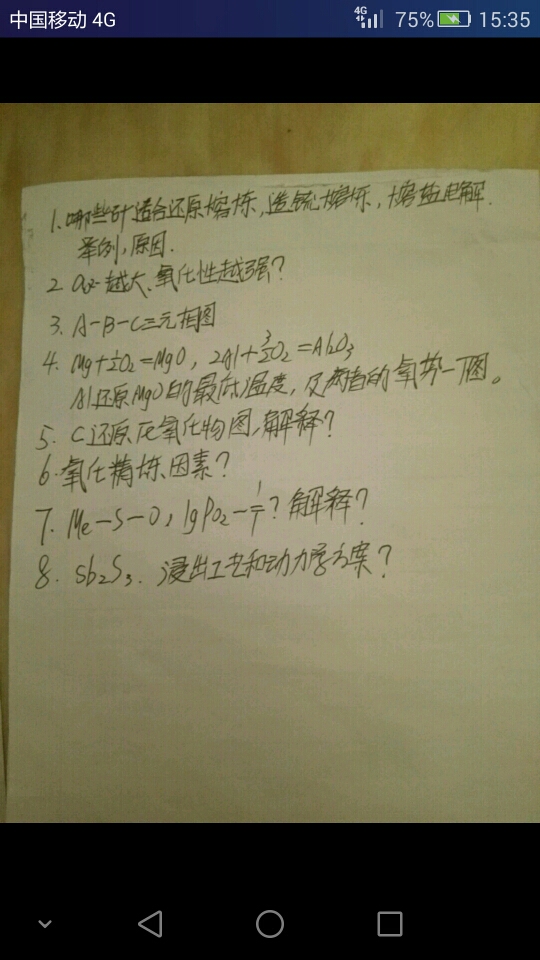 中国移动 4G 4G 75% 15:35
1.哪些矿适合还原熔炼,造锍熔炼,熔盐电解.
举例,原因.
2 越大,氧化性越强?
3. A-B-C三元相图
4. Mg+½O₂=MgO, 2Al+3/2O₂=Al₂O₃
Al还原MgO的最低温度,及两者的氧势-T图。
5. C还原Fe氧化物图,解释?
6.氧化精炼因素?
7. Me-S-O, lgPO₂-1/T? 解释?
8. Sb₂S₃. 浸出工艺和动力学方案?